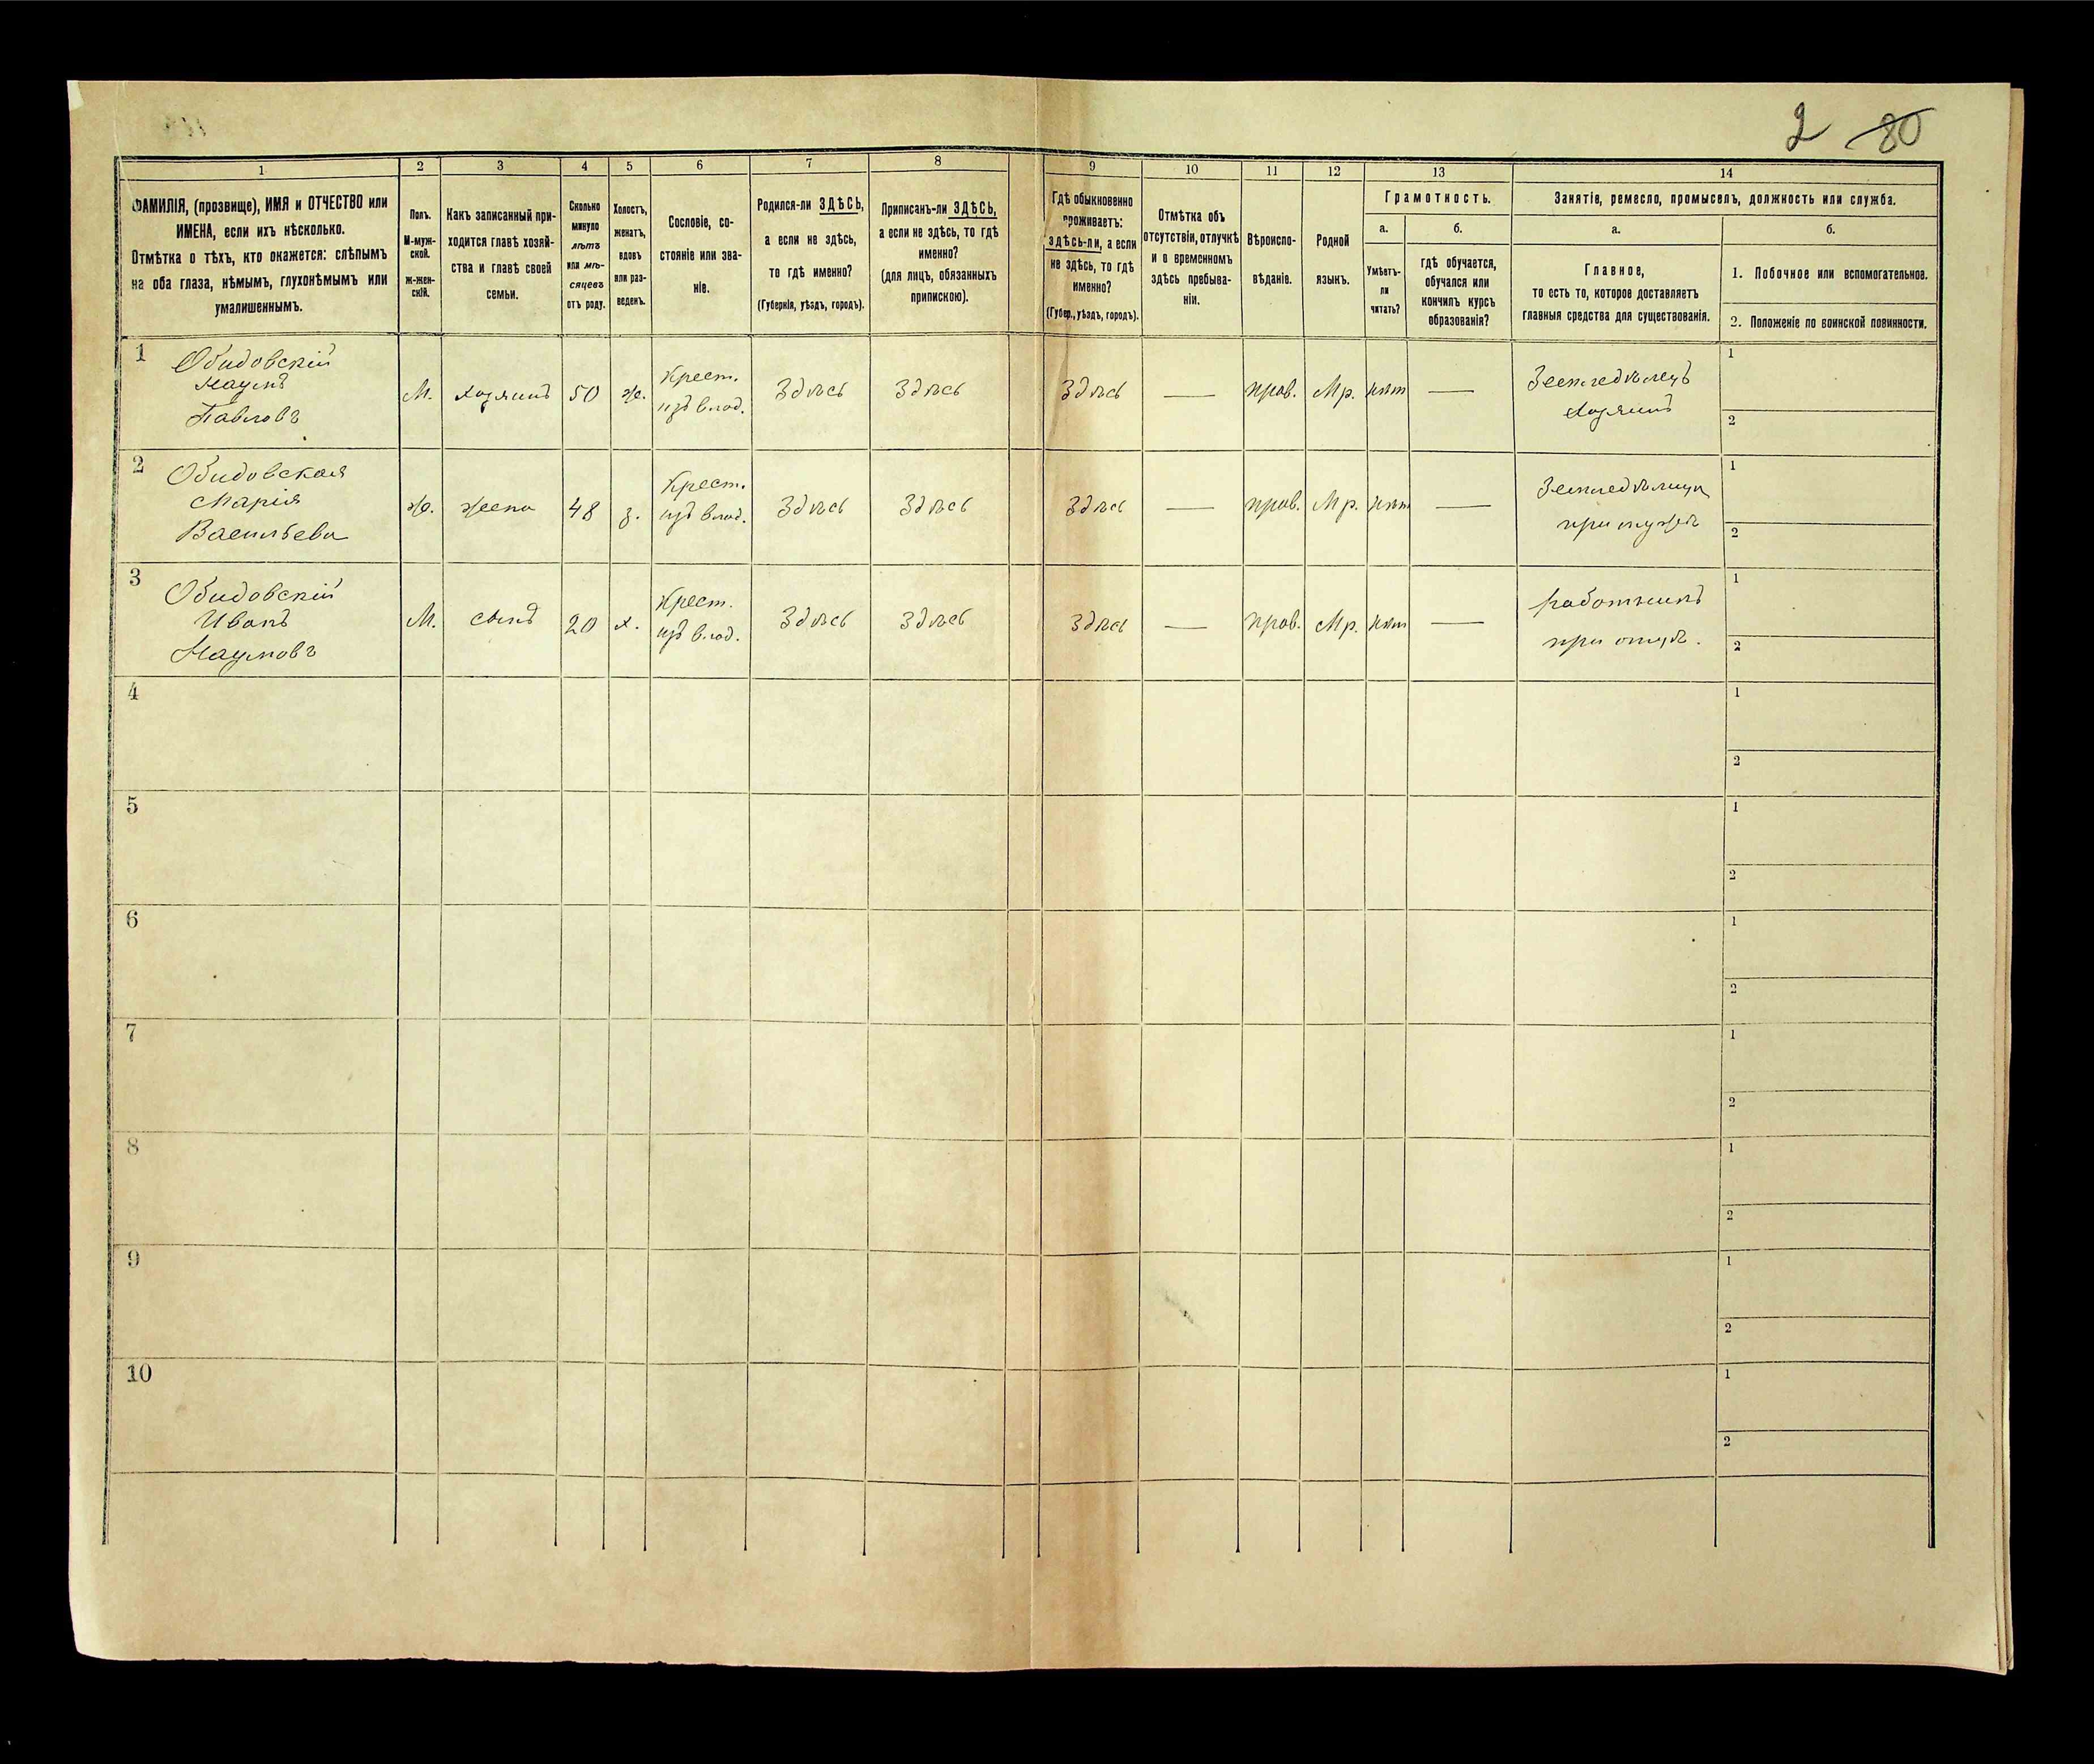 2 80
1 2 3 4 5 6 7 8 9 10 11 12 13 14
ФАМИЛІЯ, (прозвище), ИМЯ и ОТЧЕСТВО или
ИМЕНА, если ихъ нѣсколько.
Отмѣтка о тѣхъ, кто окажется: слѣпымъ
на оба глаза, нѣмымъ, глухонѣмымъ или
умалишеннымъ.
Полъ.
М-муж-
ской.
Ж-жен-
скій.
Какъ записанный при-
ходится главѣ хозяй-
ства и главѣ своей
семьи.
Сколько
минуло
лѣтъ
или мѣ-
сяцевъ
отъ роду.
Холостъ,
женатъ,
вдовъ
или раз-
веденъ.
Сословіе, со-
стояніе или зва-
ніе.
Родился-ли ЗДѢСЬ,
а если не здѣсь,
то гдѣ именно?
(Губернія, уѣздъ, городъ).
Приписанъ-ли ЗДѢСЬ,
а если не здѣсь, то гдѣ
именно?
(для лицъ, обязанныхъ
припискою).
Гдѣ обыкновенно
проживаетъ:
здѣсь-ли, а если
не здѣсь, то гдѣ
именно?
(Губер., уѣздъ, городъ).
Отмѣтка объ
отсутствіи, отлучкѣ
и о временномъ
здѣсь пребыва-
ніи.
Вѣроиспо-
вѣданіе.
Родной
языкъ.
Грамотность.
а.
Умѣетъ-
ли
читать?
б.
гдѣ обучается,
обучался или
кончилъ курсъ
образованія?
Занятіе, ремесло, промыселъ, должность или служба.
а.
Главное,
то есть то, которое доставляетъ
главныя средства для существованія.
б.
1. Побочное или вспомогательное.
2. Положеніе по воинской повинности.
1
Обидовскій
Наумъ
Павловъ
М.
хозяинъ
50
ж.
Крест.
изъ влад.
Здѣсь
Здѣсь
Здѣсь
—
прав.
Мр.
нѣт
—
Земледѣлецъ
хозяинъ
1
2
2
Обидовская
Марія
Васильева
ж.
жена
48
з.
Крест.
изъ влад.
Здѣсь
Здѣсь
Здѣсь
—
прав.
Мр.
нѣт
—
Земледѣлица
при мужѣ
1
2
3
Обидовскій
Иванъ
Наумовъ
М.
сынъ
20
х.
Крест.
изъ влад.
Здѣсь
Здѣсь
Здѣсь
—
прав.
Мр.
нѣт
—
работникъ
при отцѣ.
1
2
4
1
2
5
1
2
6
1
2
7
1
2
8
1
2
9
1
2
10
1
2